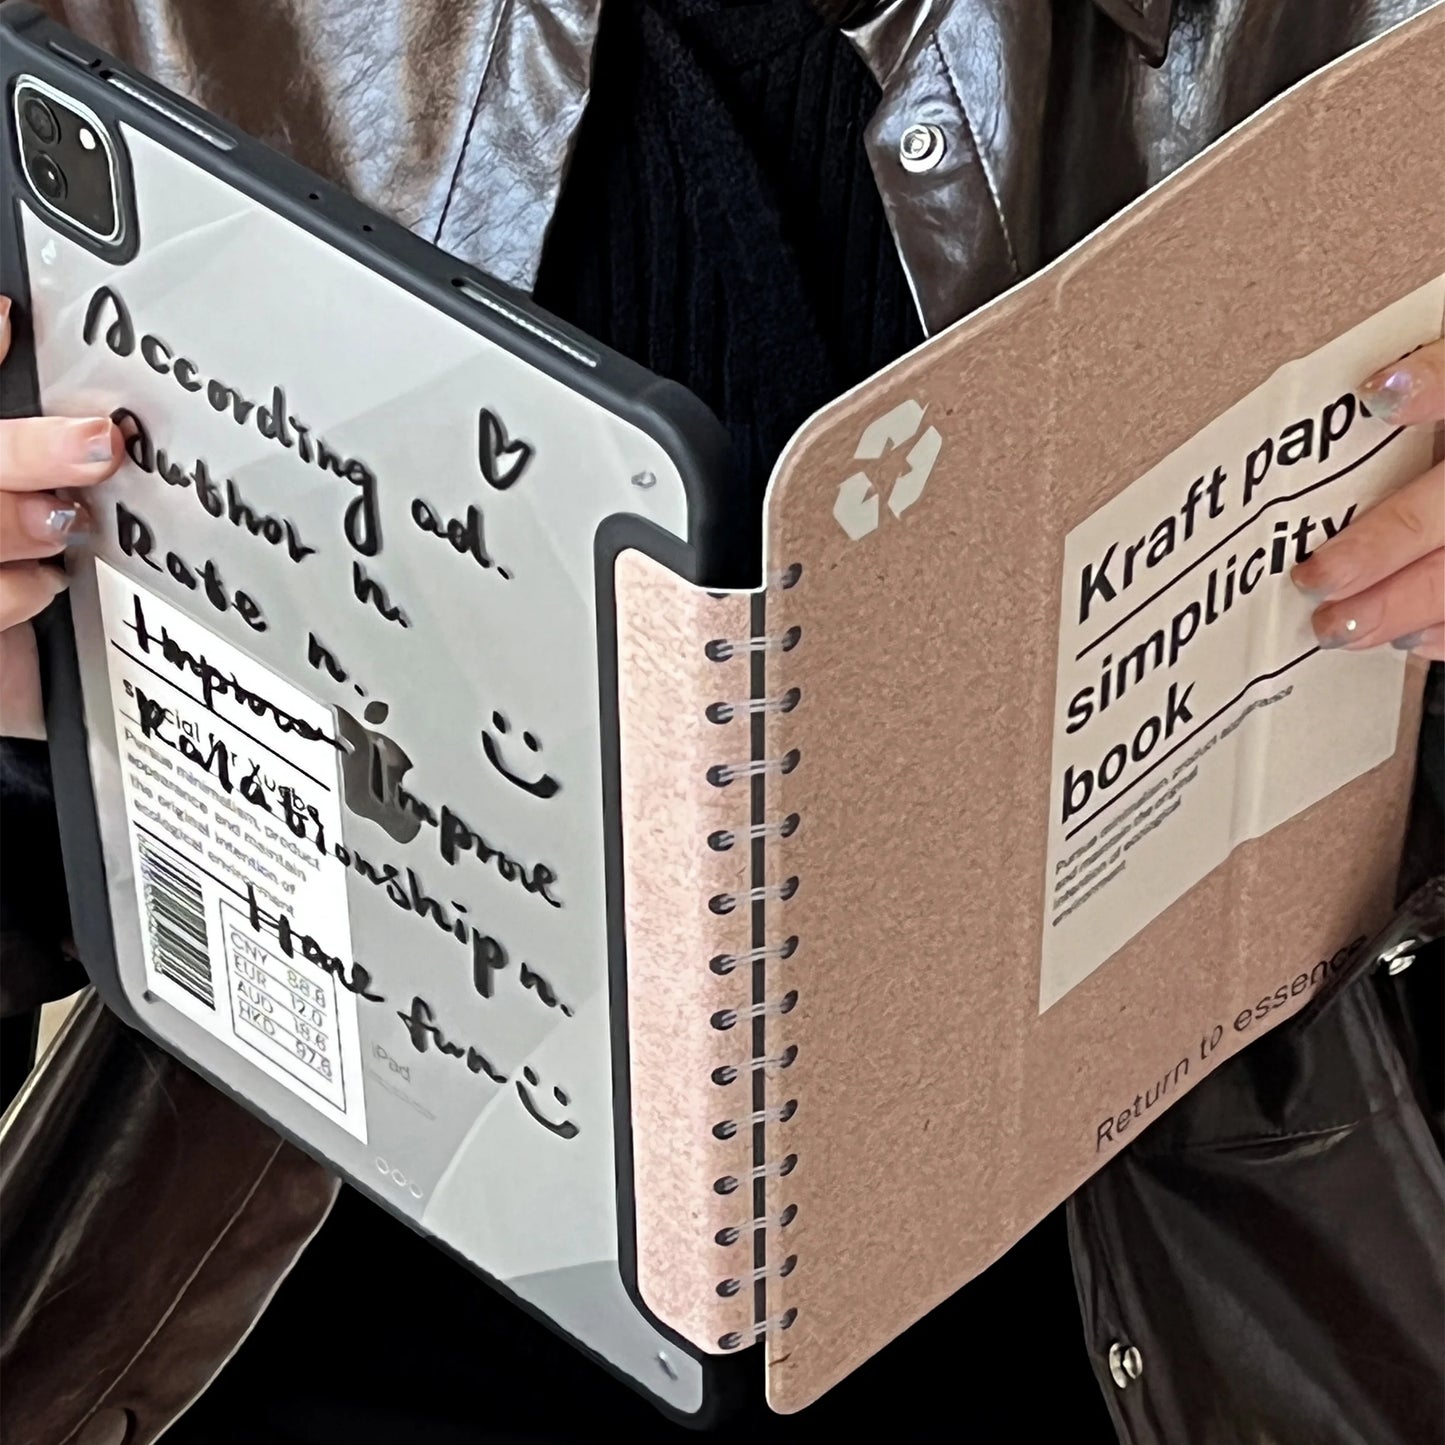 According ad.
Author n.
Rate n.
Improve
Relationship n.
Improve
Have fun
special for Xuebe
Pursue minimalism, product
appearance and maintain
the original intention of
ecological environment
CNY 88.8
EUR 12.0
AUD 18.6
HKD 97.6
iPad
Kraft pape
simplicity
book
Pursue minimalism, product appearance
and maintain the original
intention of ecological
environment.
Return to essence